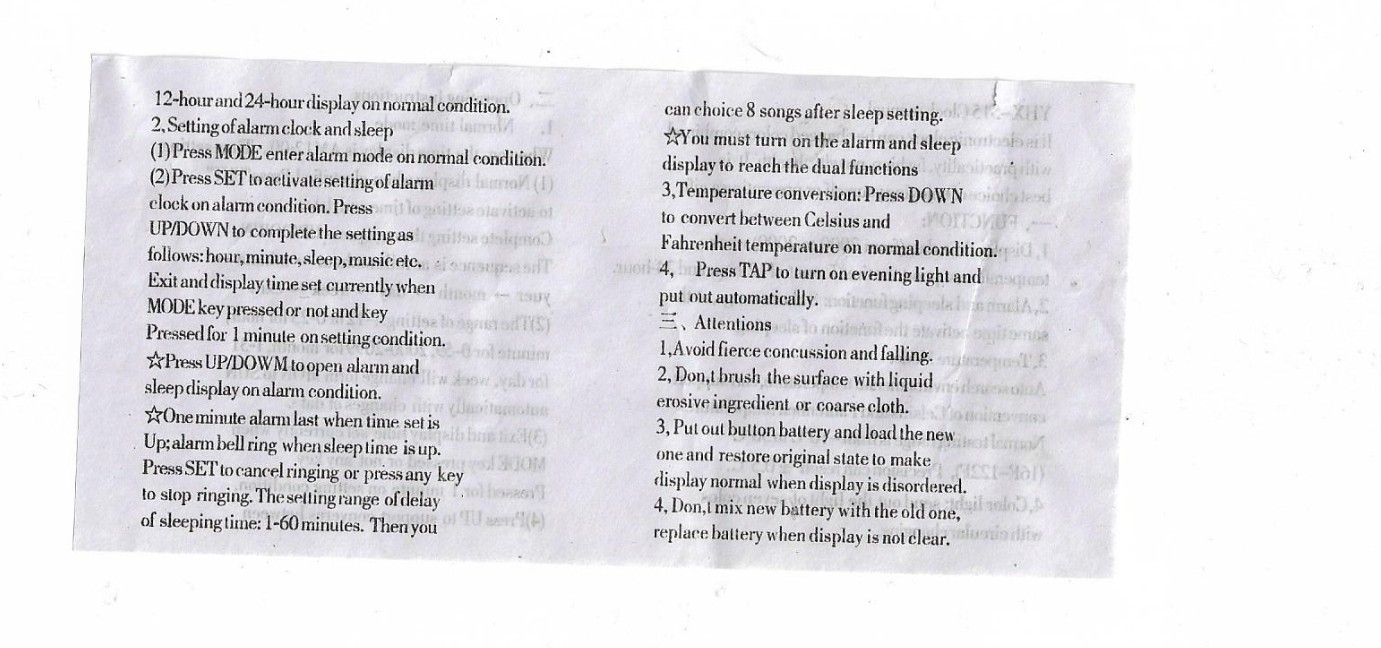 12-hour and 24-hour display on normal condition.
2, Setting of alarm clock and sleep
(1) Press MODE enter alarm mode on normal condition.
(2) Press SET to activate setting of alarm
clock on alarm condition. Press
UP/DOWN to complete the setting as
follows: hour, minute, sleep, music etc.
Exit and display time set currently when
MODE key pressed or not and key
Pressed for 1 minute on setting condition.
☆Press UP/DOWM to open alarm and
sleep display on alarm condition.
☆One minute alarm last when time set is
Up; alarm bell ring when sleep time is up.
Press SET to cancel ringing or press any key
to stop ringing. The setting range of delay
of sleeping time: 1-60 minutes. Then you
can choice 8 songs after sleep setting.
☆You must turn on the alarm and sleep
display to reach the dual functions
3,Temperature conversion: Press DOWN
to convert between Celsius and
Fahrenheit temperature on normal condition.
4, Press TAP to turn on evening light and
put out automatically.
三、Attentions
1,Avoid fierce concussion and falling.
2, Don,t brush the surface with liquid
erosive ingredient or coarse cloth.
3, Put out button battery and load the new
one and restore original state to make
display normal when display is disordered.
4, Don,t mix new battery with the old one,
replace battery when display is not clear.